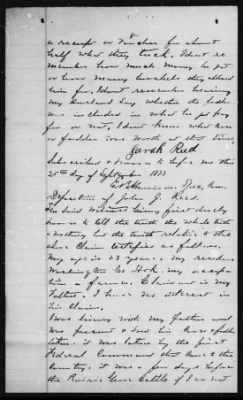 8
a receipt or voucher for about
half what they took. I dont re
member how much money he got
or how many bushels they allowed
him for. I dont remember hearing
my husband say whether the fodder
was included in what he got pay
for or not. I dont know what corn
or fodder was worth at the time.
Sarah Reed
Subscribed & sworn to before me this
20th day of September 1877
Spec. Com.
Deposition of John J. Reed.
The said Witness being first duly
sworn to tell the truth the whole truth
& nothing but the truth relative to the
above Claim testifies as follows.
My age is 23 years. My residence
Washington Co Ark. My occupa
tion a farmer. Claimant is my
Father. I have no interest in
his Claim.
I was living with my father and
was present & saw his corn & fodder
taken. it was taken by the first
Federal Command that came to the
Country. it was a few days before
the Prairie Grove battle if I am not